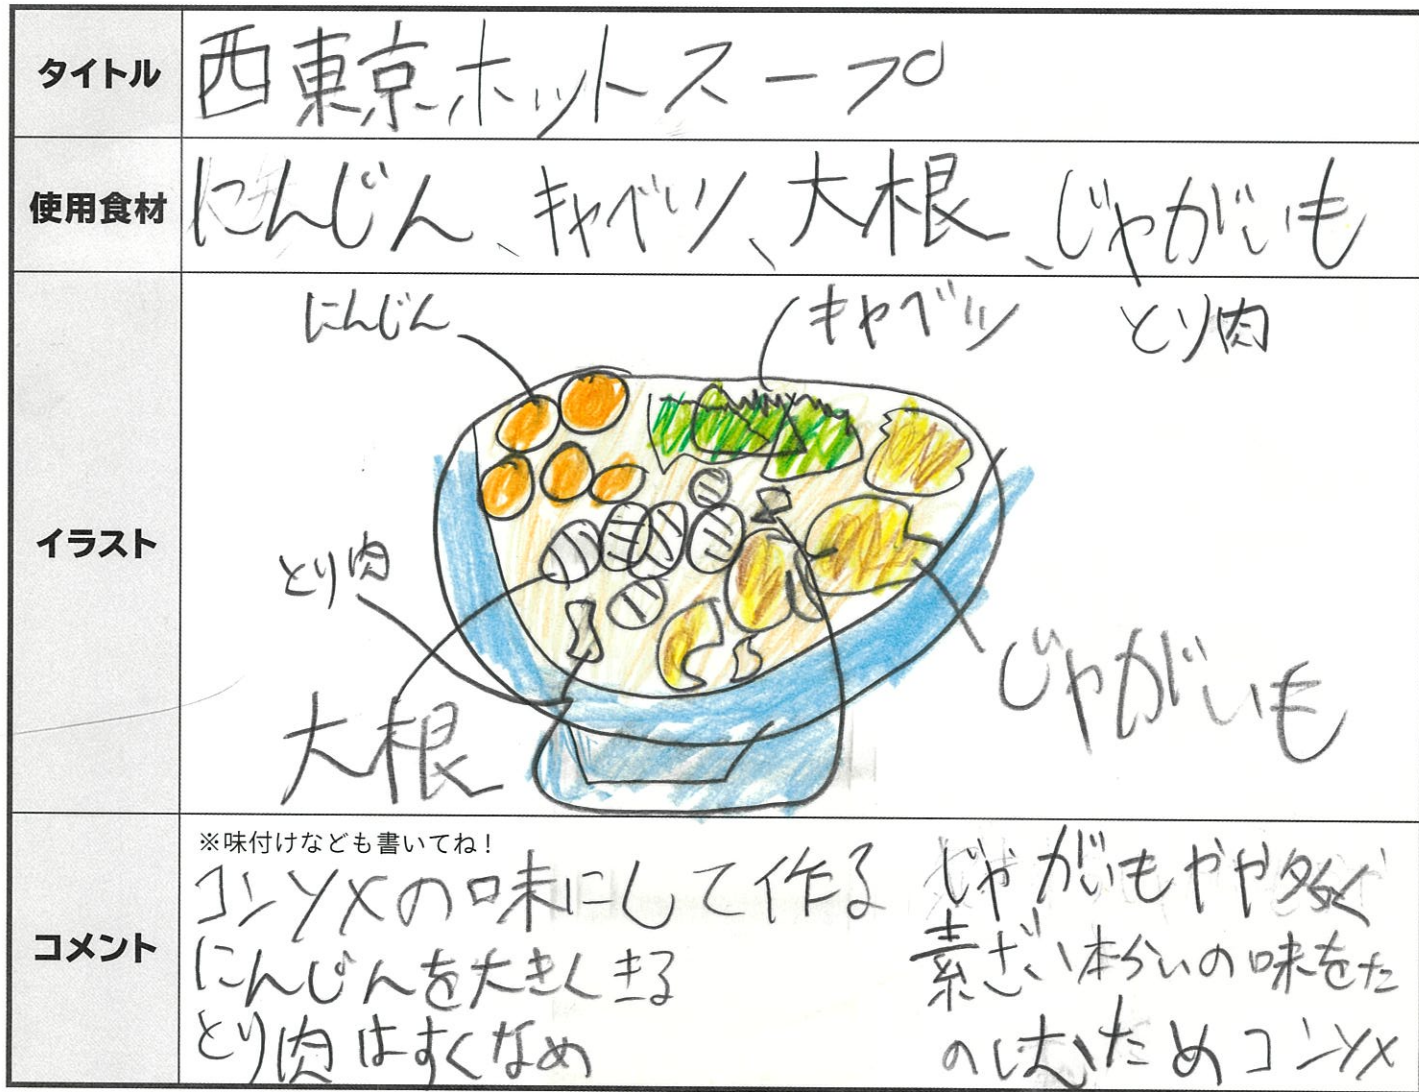 タイトル
西東京ホットスープ
使用食材
にんじん、キャベツ、大根、じゃがいも
とり肉
イラスト
にんじん
キャベツ
とり肉
大根
じゃがいも
コメント
※味付けなども書いてね!
コンソメの味にして作る
にんじんを大きくきる
とり肉はすくなめ
じゃがいもやや多く
素ざい本らいの味をた
のしむためコンソメ